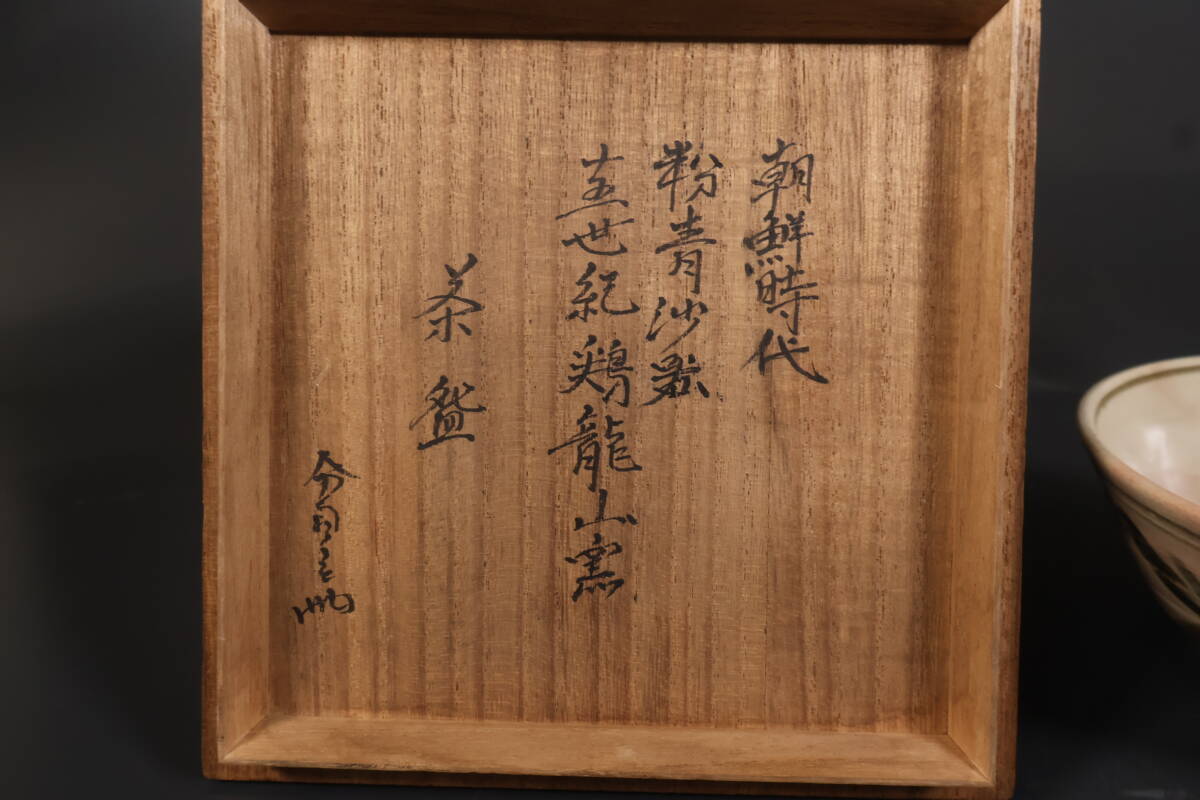 朝鮮時代
粉青沙器
十五世紀鶏龍山窯
茶盌